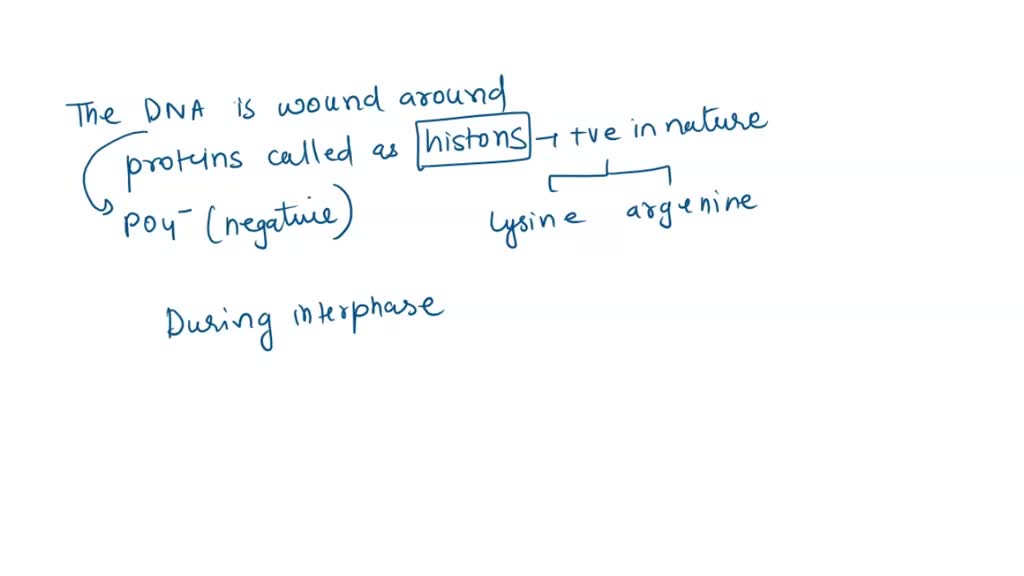 The DNA is wound around
proteins called as histons → +ve in nature
PO4⁻ (negative) lysine argenine
During interphase